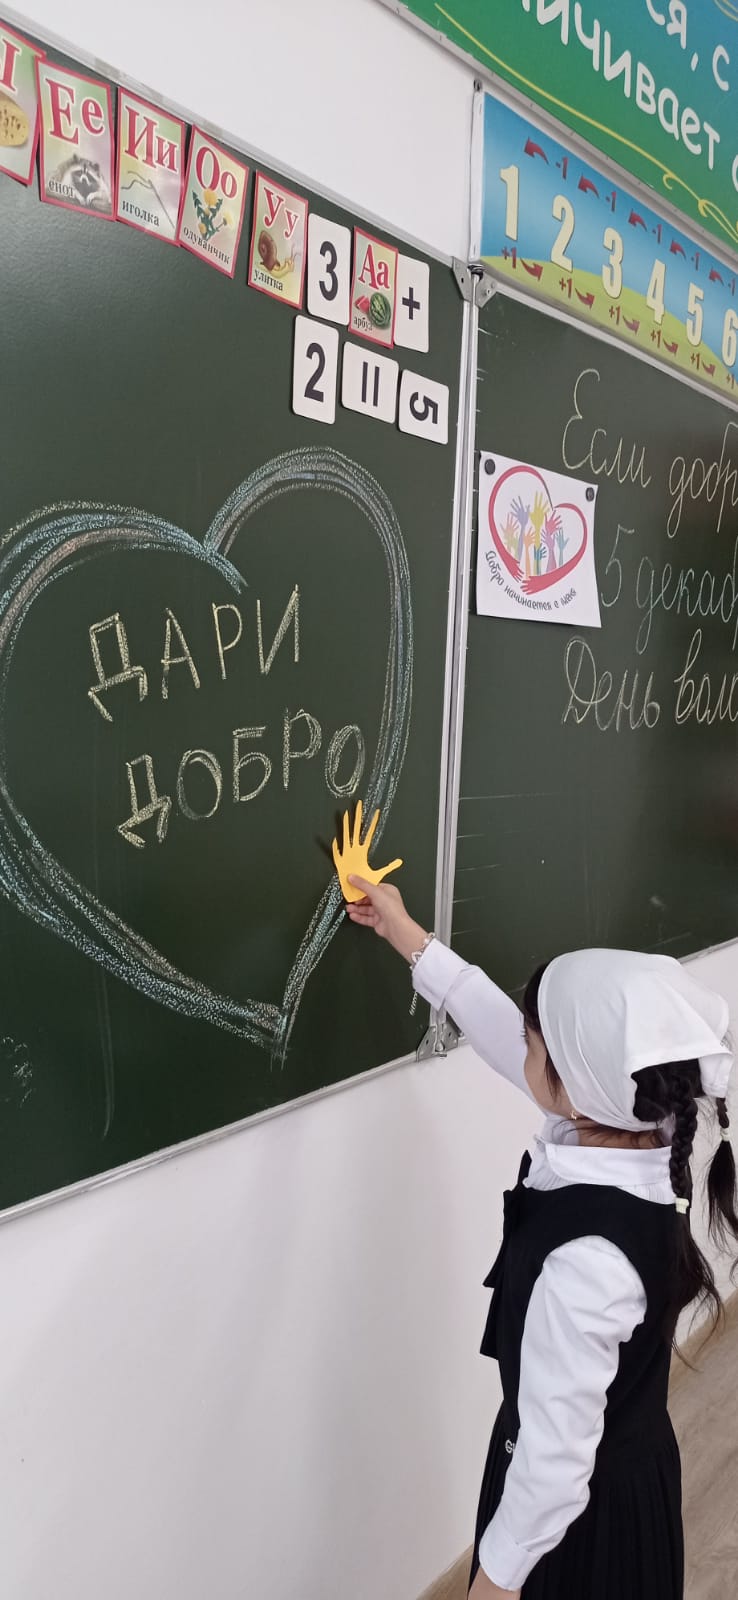 ся, с
ичивает
Ы
Ее
енот
Ии
иголка
Оо
одуванчик
Уу
улитка
3
Аа
арбуз
+
2
=
5
-1 -1 -1 -1 -1
1 2 3 4 5 6
+1 +1 +1 +1 +1
ДАРИ
ДОБРО
Добро начинается с меня
Если добр
5 декаб
День воло